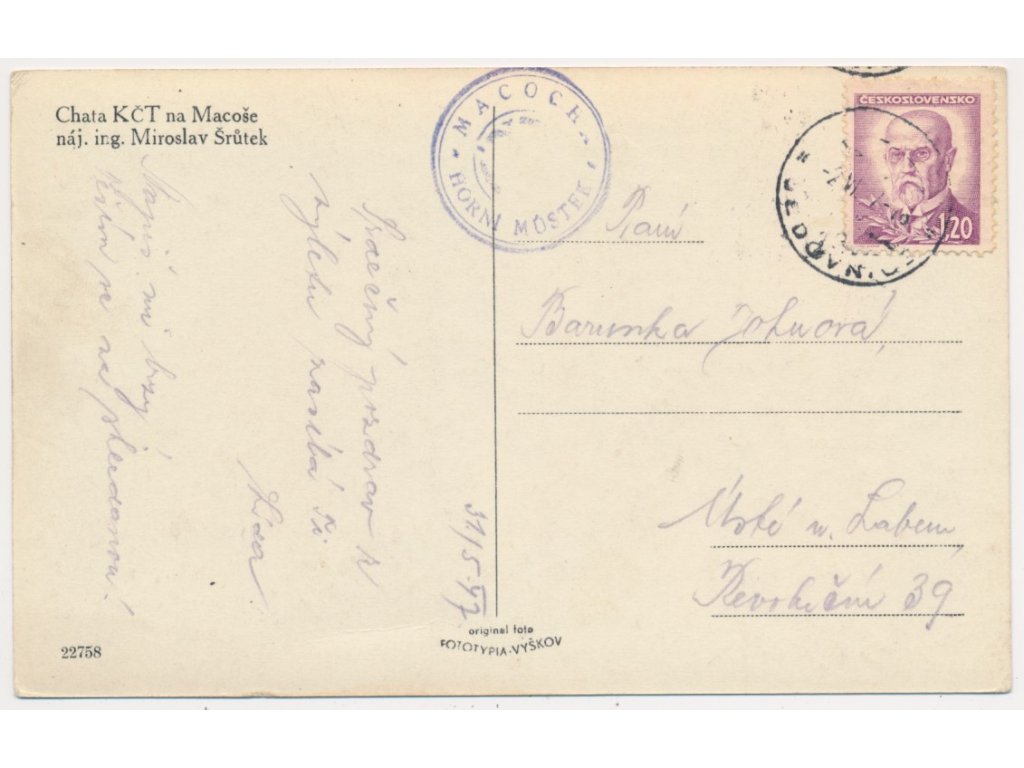 Chata KČT na Macoše
náj. ing. Miroslav Šrůtek
MACOCHA
HORNÍ MŮSTEK
ČESKOSLOVENSKO
1·20
JEDOVNICE
31/5. 47.
Srdečný pozdrav z
výletu zasílá Ti
Lída.
Napiš mi brzy
těším se na shledanou!
Paní
Barunka
Ústí n. Labem
Revoluční 39
original foto
FOTOTYPIA-VYŠKOV
22758